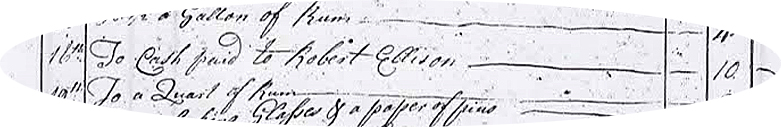 a Gallon of Rum
18th To Cash paid to Robert Ellison 10
19th To a Quart of Rum
Glasses & a paper of pins